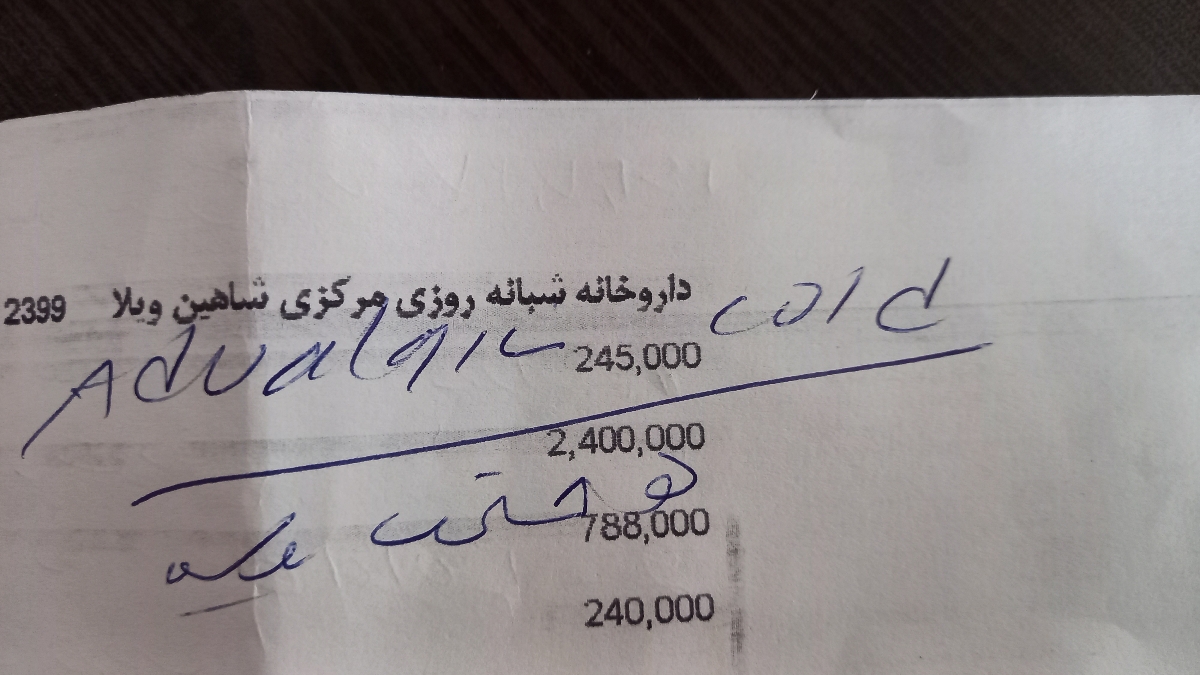 داروخانه شبانه روزی مرکزی شاهین ویلا 2399
Advalgic cold
245,000
2,400,000
788,000
240,000